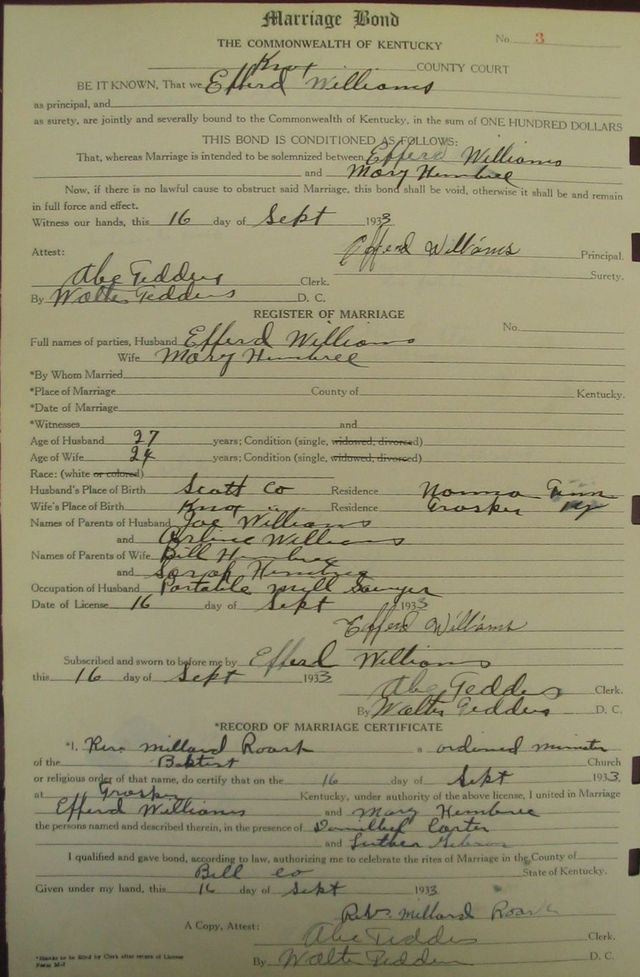 Marriage Bond
No. 3
THE COMMONWEALTH OF KENTUCKY
Knox COUNTY COURT
BE IT KNOWN, That we Efferd Williams
as principal, and
as surety, are jointly and severally bound to the Commonwealth of Kentucky, in the sum of ONE HUNDRED DOLLARS
THIS BOND IS CONDITIONED AS FOLLOWS:
That, whereas Marriage is intended to be solemnized between Efferd Williams
and Mary Hembree
Now, if there is no lawful cause to obstruct said Marriage, this bond shall be void, otherwise it shall be and remain
in full force and effect.
Witness our hands, this 16 day of Sept 1933
Efferd Williams Principal.
Attest:
Surety.
Abe Geddes Clerk.
By Walter Geddes D. C.
REGISTER OF MARRIAGE
No.
Full names of parties, Husband Efferd Williams
Wife Mary Hembree
*By Whom Married
*Place of Marriage County of Kentucky.
*Date of Marriage
*Witnesses and
Age of Husband 27 years; Condition (single, widowed, divorced)
Age of Wife 24 years; Condition (single, widowed, divorced)
Race: (white or colored)
Husband's Place of Birth Scott Co Residence Norma Tenn
Wife's Place of Birth Knox Residence Crosker Ky
Names of Parents of Husband Joe Williams
and Williams
Names of Parents of Wife Bill Hembree
and Sarah Hembree
Occupation of Husband Portable mill Sawyer
Date of License 16 day of Sept 1933
Efferd Williams
Subscribed and sworn to before me by Efferd Williams
this 16 day of Sept 1933
Abe Geddes Clerk.
By Walter Geddes D. C.
*RECORD OF MARRIAGE CERTIFICATE
*I, Rev. Millard Roark a ordened minister
of the Baptist Church
or religious order of that name, do certify that on the 16 day of Sept 1933
at Crosker Kentucky, under authority of the above license, I united in Marriage
Efferd Williams and Mary Hembree
the persons named and described therein, in the presence of Carter
and Luther
I qualified and gave bond, according to law, authorizing me to celebrate the rites of Marriage in the County of
Bell Co State of Kentucky.
Given under my hand, this 16 day of Sept 1933
Rev. Millard Roark
A Copy, Attest: Abe Geddes Clerk.
*Blanks to be filled by Clerk after return of License
By Walter Geddes D. C.